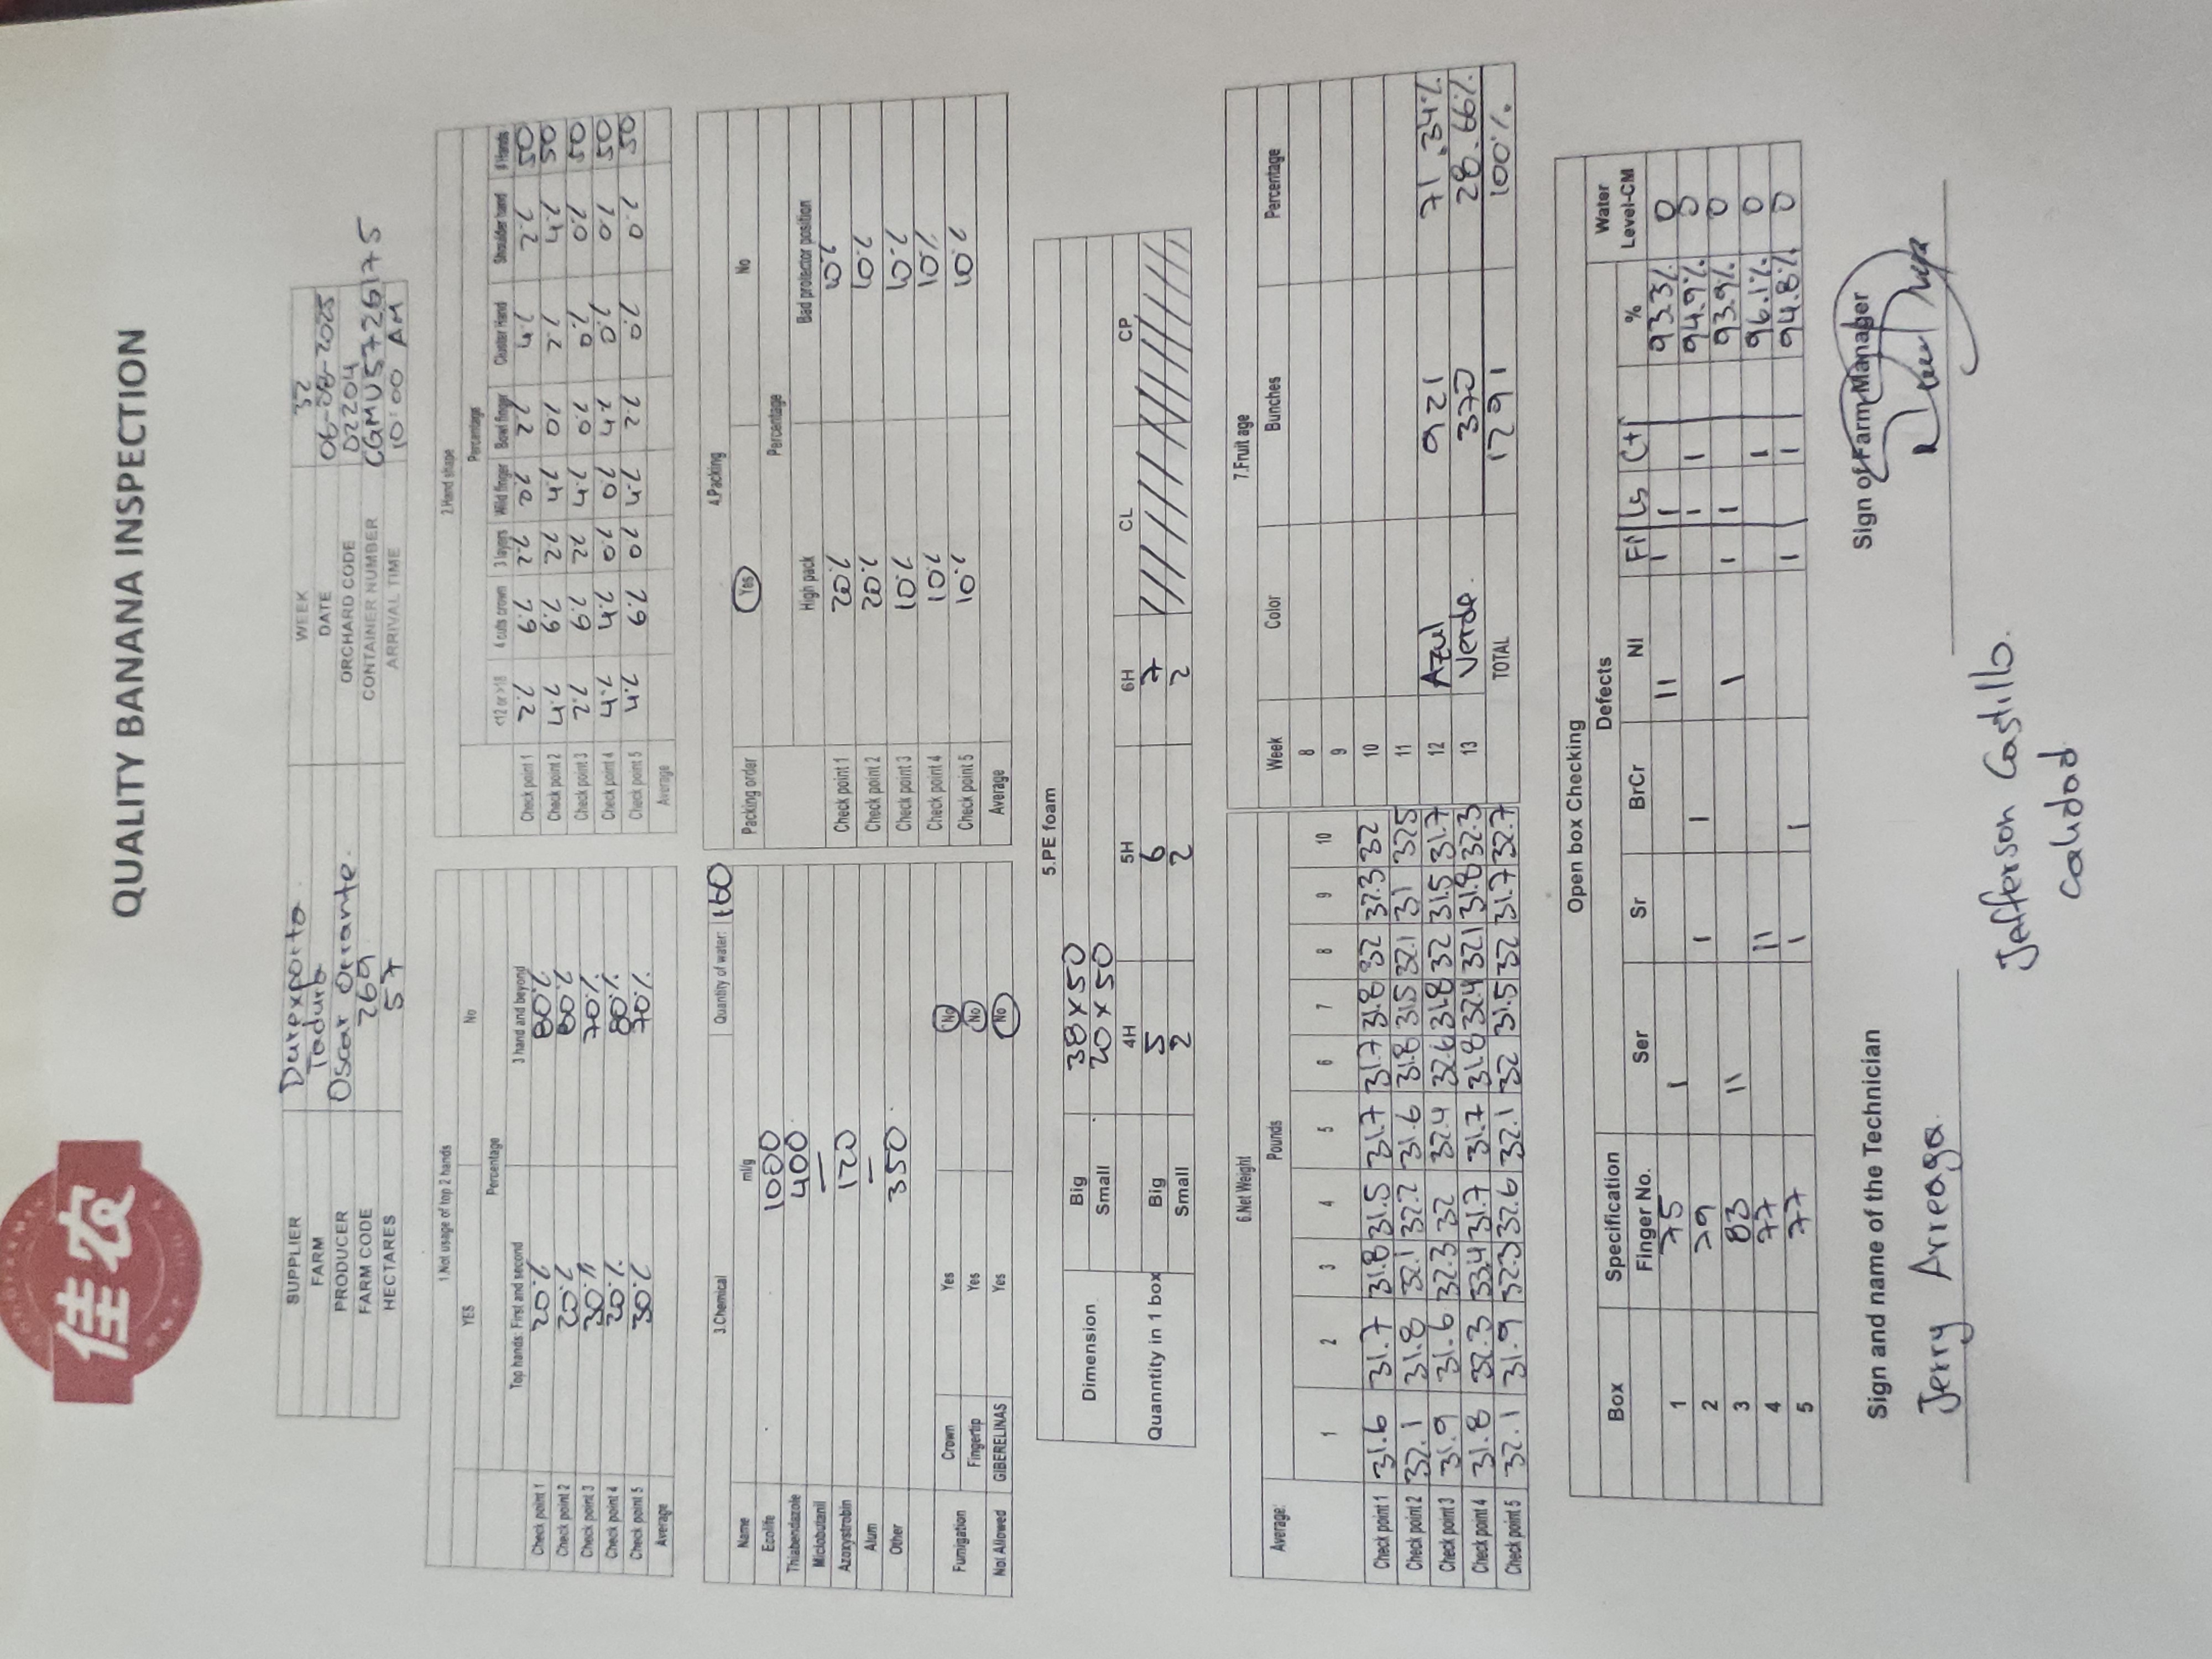 佳农
QUALITY BANANA INSPECTION
SUPPLIER Durexporta WEEK 32
FARM Tadura DATE 06-08-2025
PRODUCER Oscar Orrante. ORCHARD CODE 02204
FARM CODE 269 CONTAINER NUMBER CGMU5726175
HECTARES 57 ARRIVAL TIME 10:00 AM
1.Not usage of top 2 hands
YES No
Percentage
Top hands: First and second 3 hand and beyond
Check point 1 20% 80%
Check point 2 20% 80%
Check point 3 30% 70%
Check point 4 20% 80%
Check point 5 30% 70%
Average
2.Hand shape
Percentage
<12 or >18 4 cuts crown 3 layers Wild finger Bowl finger Cluster Hand Shoulder hand # Hands
Check point 1 2% 6% 2% 0% 2% 4% 2% 50
Check point 2 4% 6% 2% 4% 0% 2% 4% 50
Check point 3 2% 6% 2% 4% 0% 0% 0% 50
Check point 4 4% 4% 0% 0% 4% 0% 0% 50
Check point 5 4% 6% 0% 4% 2% 0% 0% 50
Average
3.Chemical Quantity of water: 160
Name ml/g
Ecolife 1000
Thiabendazole 400
Miclobutanil —
Azoxystrobin 120
Alum —
Other 350
Fumigation Crown Yes No
Fingertip Yes No
Not Allowed GIBERELINAS Yes No
4.Packing
Packing order Yes No
Percentage
High pack Bad protector position
Check point 1 20% 10%
Check point 2 20% 10%
Check point 3 10% 10%
Check point 4 10% 10%
Check point 5 10% 10%
Average
5.PE foam
Dimension Big 38x50
Small 20x50
4H 5H 6H CL CP
Quanntity in 1 box Big 5 6 7
Small 2 2 2
6.Net Weight
Average: Pounds
1 2 3 4 5 6 7 8 9 10
Check point 1 31.6 31.7 31.8 31.5 31.7 31.7 31.8 32 32.3 32
Check point 2 32.1 31.8 32.1 32.2 31.6 31.8 31.5 32.1 31 32.5
Check point 3 31.9 31.6 32.3 32 32.4 32.6 31.8 32 31.5 31.7
Check point 4 31.8 32.3 33.4 31.7 31.7 31.8 32.4 32.1 31.8 32.3
Check point 5 32.1 31.9 32.3 32.6 32.1 32 31.5 32 31.7 32.7
7.Fruit age
Week Color Bunches Percentage
8
9
10
11
12 Azul 921 71.34%
13 Verde. 370 28.66%
TOTAL 1291 100%.
Open box Checking
Box Specification Defects Water
Finger No. Ser Sr BrCr NI Fi Ls C+ % Level-CM
1 75 I II I I 93.3% 0
2 79 I I I I 94.9% 0
3 83 II I I I 93.9% 0
4 77 II I 96.1% 0
5 77 I I I I 94.8% 0
Sign and name of the Technician Sign of Farm Manager
Jerry Arreaga.
Jefferson Castillo.
calidad